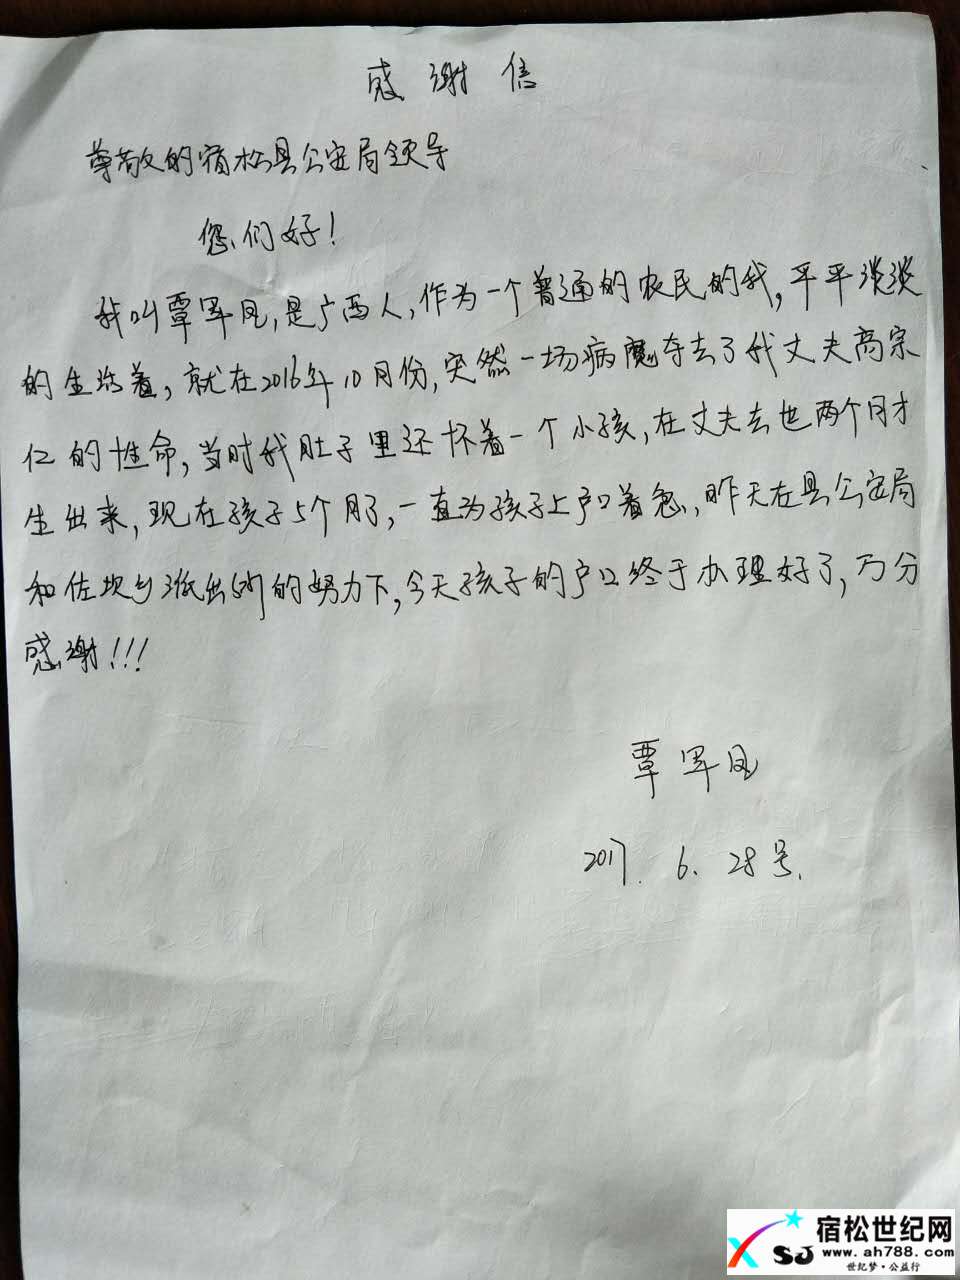 感谢信
尊敬的宿松县公安局领导
您们好!
我叫覃军凤,是广西人,作为一个普通的农民的我,平平淡淡
的生活着,就在2016年10月份,突然一场病魔夺去了我丈夫高宗
仁的性命,当时我肚子里还怀着一个小孩,在丈夫去世两个月才
生出来,现在孩子5个月了,一直为孩子上户口着急,昨天在县公安局
和佐坝乡派出所的努力下,今天孩子的户口终于办理好了,万分
感谢!!!
覃军凤
2017.6.28号.
宿松世纪网
www.ah788.com
世纪梦·公益行
XSJ